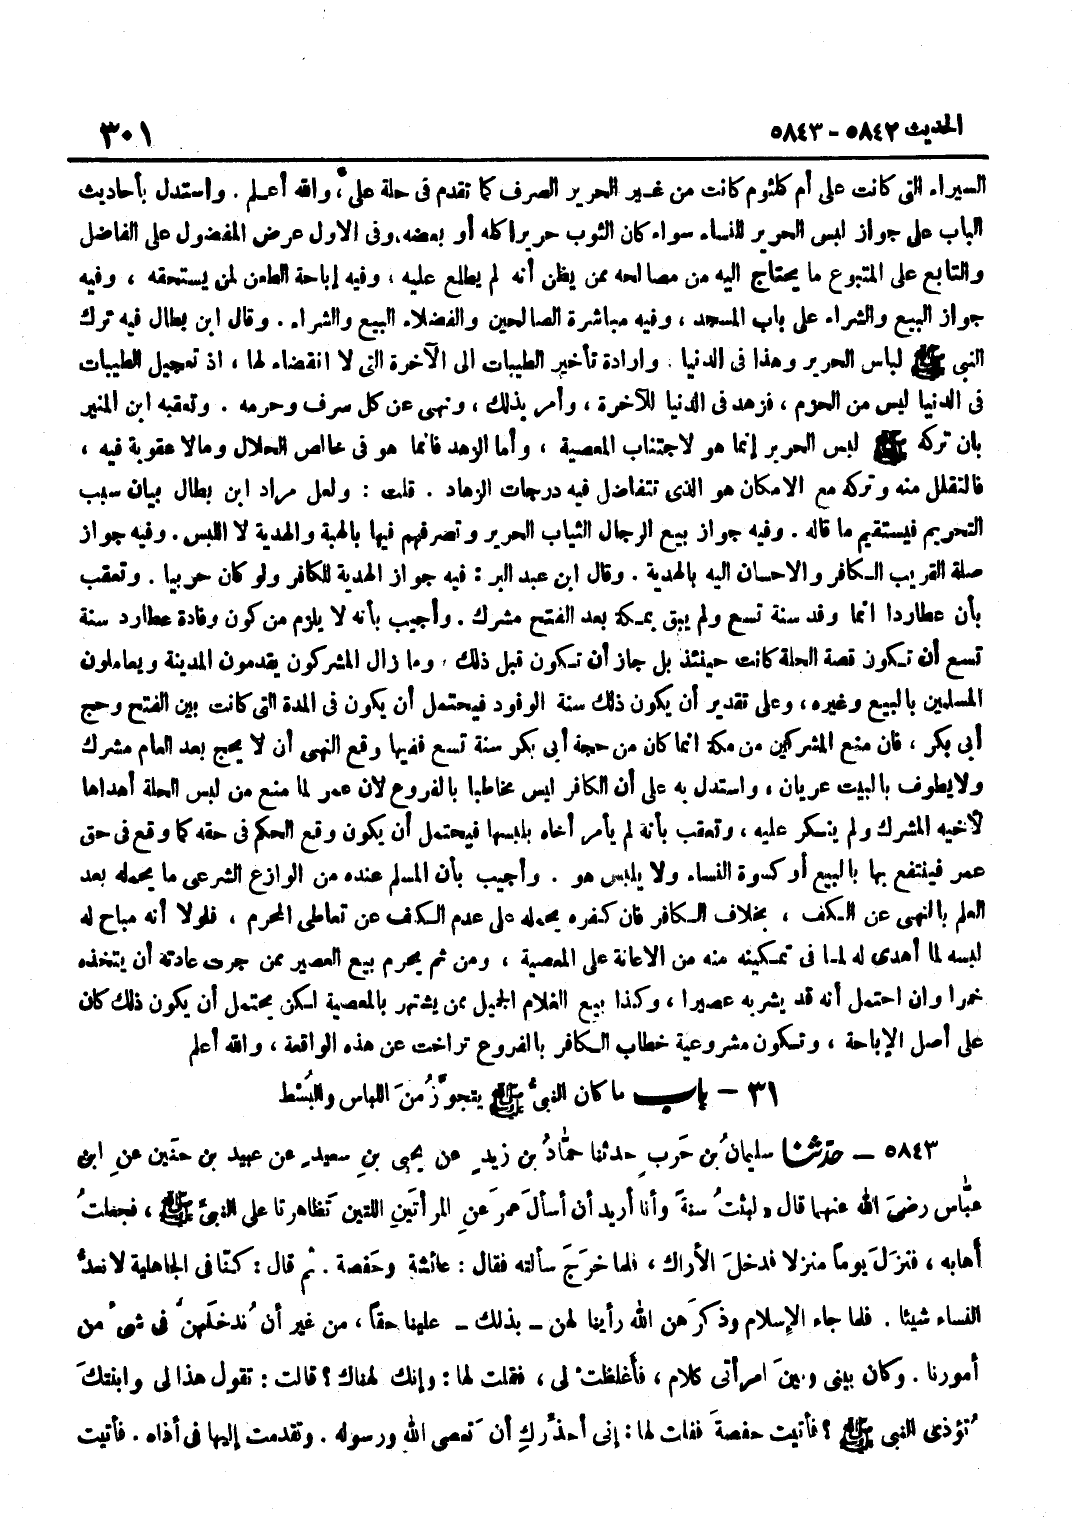 الحديث ٥٨٤٢ - ٥٨٤٣
٣٠١
السيراء التى كانت على أم كلثوم كانت من غير الحرير الصرف كما تقدم فى حلة على ، واقه أعلم . واستدل بأحاديث
الباب على جواز لبس الحرير للنساء سواء كان الثوب حريرا كله أو بعضه، وفى الاول عرض المفضول على الفاضل
والتابع على المتبوع ما يحتاج اليه من مصالحه ممن يظن أنه لم يطلع عليه ، وفيه إباحة الطعن لمن يستحقه ، وفيه
جواز البيع والشراء على باب المسجد ، وفيه مباشرة الصالحين والفضلاء البيع والشراء . وقال ابن بطال فيه ترك
النبى ﷺ لباس الحرير وهذا فى الدنيا . وارادة تأخير الطيبات الى الآخرة التى لا انقضاء لها ، اذ تعجيل الطيبات
فى الدنيا ليس من الحزم ، فزهد فى الدنيا للآخرة ، وأمر بذلك ، ونهى عن كل سرف وحرمه . وتعقبه ابن المنير
بان تركه ﷺ لبس الحرير إنما هو لاجتناب المعصية ، وأما الزهد فانما هو فى خالص الحلال ومالا عقوبة فيه ،
فالتقلل منه وتركه مع الامكان هو الذى تتفاضل فيه درجات الزهاد . قلت : ولعل مراد ابن بطال بيان سبب
التحريم فيستقيم ما قاله . وفيه جواز بيع الرجال الثياب الحرير وتصرفهم فيها بالهبة والهدية لا اللبس . وفيه جواز
صلة القريب الكافر والاحسان اليه بالهدية . وقال ابن عبد البر : فيه جواز الهدية للكافر ولو كان حربيا . وتعقب
بأن عطاردا انما وفد سنة تسع ولم يبق بمكة بعد الفتح مشرك . وأجيب بأنه لا يلزم من كون وفادة عطارد سنة
تسع أن تكون قصة الحلة كانت حينئذ بل جاز أن تكون قبل ذلك ، وما زال المشركون يقدمون المدينة ويعاملون
المسلمين بالبيع وغيره ، وعلى تقدير أن يكون ذلك سنة الوفود فيحتمل أن يكون فى المدة التى كانت بين الفتح وحج
أبى بكر ، فان منع المشركين من مكة انما كان من حجة أبى بكر سنة تسع ففيها وقع النهى أن لا يحج بعد العام مشرك
ولايطوف بالبيت عريان ، واستدل به على أن الكافر ليس مخاطبا بالفروع لان عمر لما منع من لبس الحلة أهداها
لأخيه المشرك ولم ينكر عليه ، وتعقب بأنه لم يأمر أخاه بلبسها فيحتمل أن يكون وقع الحكم فى حقه كما وقع فى حق
عمر فينتفع بها بالبيع أو كسوة النساء ولا يلبس هو . وأجيب بأن المسلم عنده من الوازع الشرعى ما يحمله بعد
العلم بالنهى عن الكف ، بخلاف الكافر فان كفره يحمله على عدم الكف عن تعاطى المحرم ، فلولا أنه مباح له
لبسه لما أهدى له لما فى تمكينه منه من الاعانة على المعصية ، ومن ثم يحرم بيع العصير ممن جرت عادته أن يتخذه
خمرا وان احتمل أنه قد يشربه عصيرا ، وكذا بيع الغلام الجميل ممن يشتهر بالمعصية لكن يحتمل أن يكون ذلك كان
على أصل الإباحة ، وتكون مشروعية خطاب الكافر بالفروع تراخت عن هذه الواقعة ، والله أعلم
٣١ - باب ما كان النبىُّ ﷺ يتجوَّزُ منَ اللباس والبُسْط
٥٨٤٣ - حدثنا سليمانُ بن حَرب حدثنا حمَّادُ بن زيدٍ عن يحيى بنِ سعيدٍ عن عبيد بن حنَين عنِ ابن
عبَّاس رضىَ الله عنهما قال « لبثتُ سنةً وأنا أريد أن أسألَ عمرَ عنِ المرأتَينِ اللتين تَظاهرتا على النبىِّ ﷺ ، فجعلتُ
أهابه ، فنزلَ يوماً منزلا فدخلَ الأراك ، فلما خرَجَ سألته فقال : عائشة وحَفصة . ثم قال : كنّا فى الجاهلية لا نعدُّ
النساء شيئا . فلما جاء الإسلام وذكرَهن الله رأينا لهن - بذلك - علينا حقاً ، من غير أن نُدخلَهنَّ فى شىء من
أمورنا . وكان بينى وبينَ امرأتى كلام ، فأغلظتْ لى ، فقلت لها : وإنك لهناك ؟ قالت : تقول هذا لى وابنتكَ
تُؤذى النبى ﷺ ؟ فأتيت حفصةَ فقلت لها : إنى أحذِّركِ أن تَعصى الله ورسوله . وتقدمت إليها فى أذاه . فأتيت